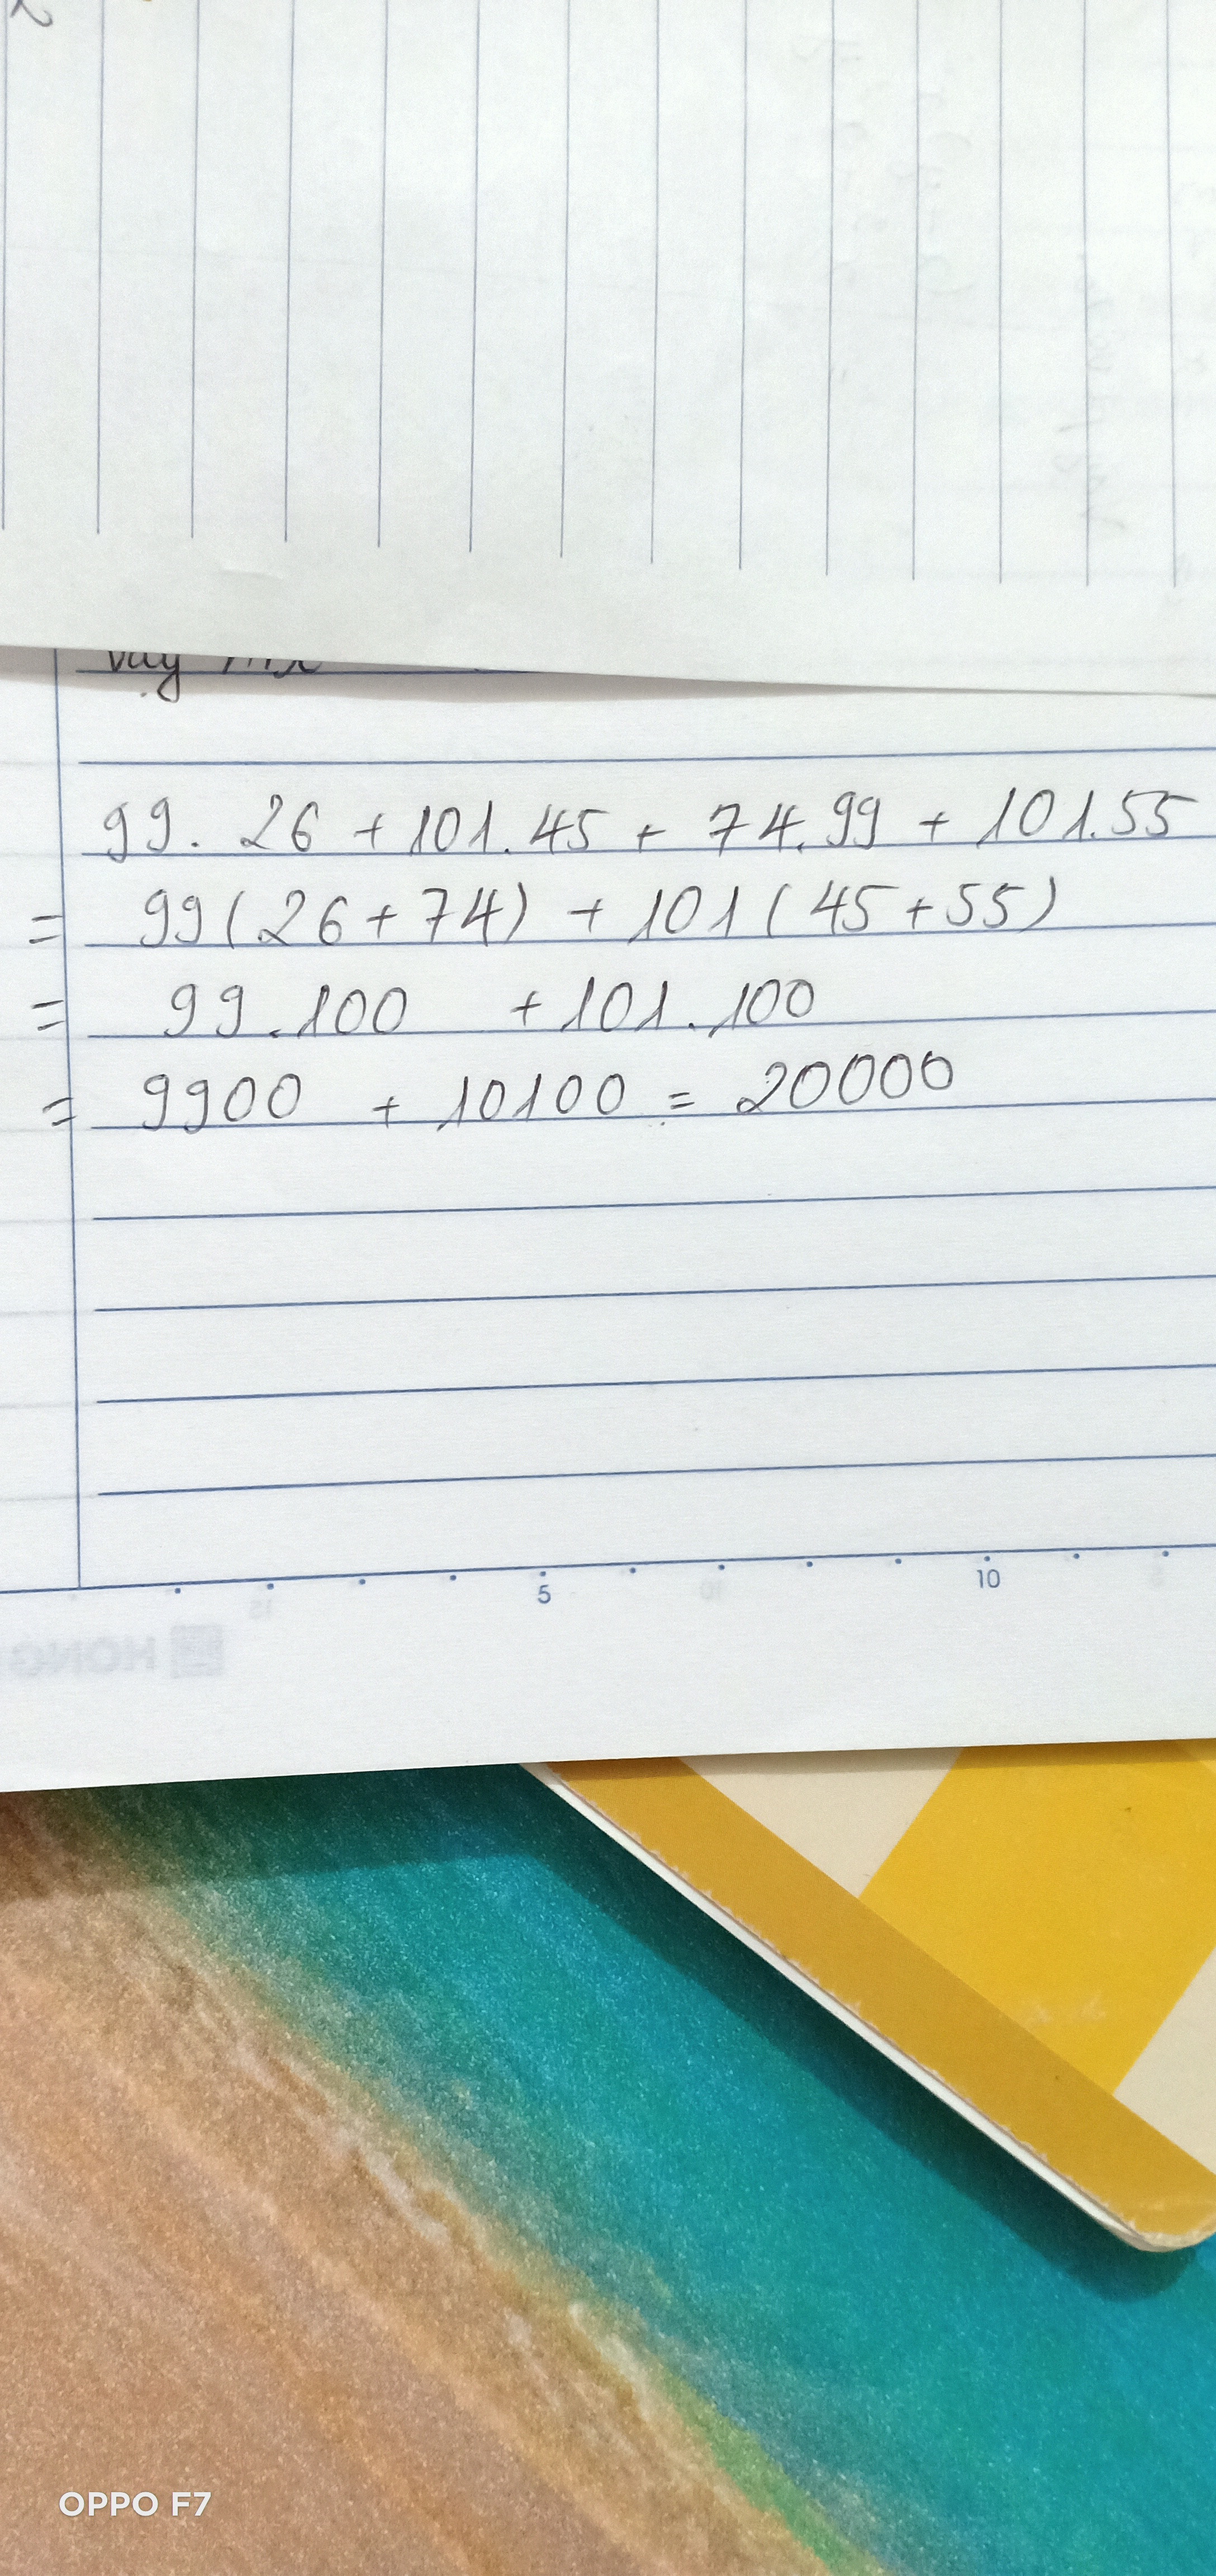 99. 26 + 101. 45 + 74. 99 + 101. 55
= 99 ( 26 + 74 ) + 101 ( 45 + 55 )
= 99. 100 + 101. 100
= 9900 + 10100 = 20000
5 10
OPPO F7